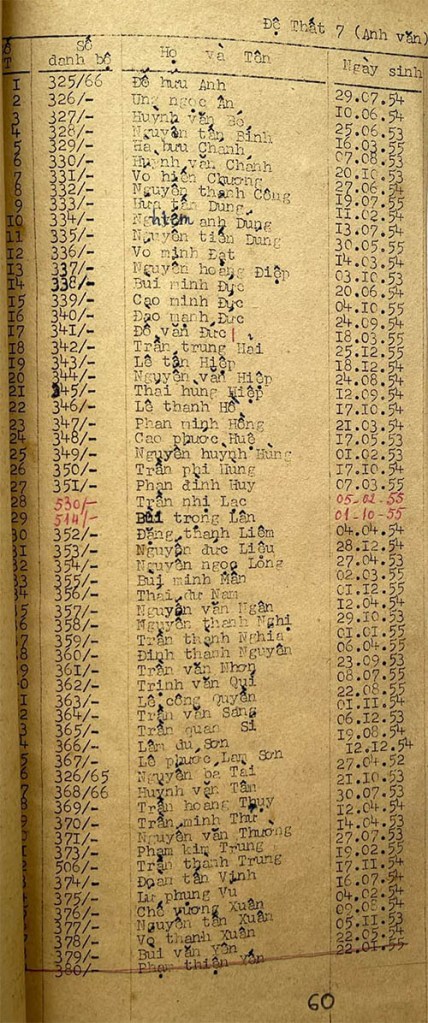 Đệ Thất 7 (Anh văn)
Số danh bộ Họ và Tên Ngày sinh
1 325/66 Đỗ hữu Anh 29.07.54
2 326/- Ung ngọc Ẩn 10.06.54
3 327/- Huỳnh văn Bé 25.06.53
4 328/- Nguyễn tấn Bính 16.03.55
5 329/- Hà bửu Chánh 07.08.53
6 330/- Huỳnh văn Chánh 20.10.53
7 331/- Võ hiền Chương 27.06.54
8 332/- Nguyễn thành Công 19.07.55
9 333/- Hứa tấn Dũng 11.02.54
10 334/- Nghiêm anh Dũng 13.07.54
11 335/- Nguyễn tiến Dũng 30.05.55
12 336/- Võ minh Đạt 14.03.54
13 337/- Nguyễn hoàng Điệp 03.10.53
14 338/- Bùi minh Đức 20.06.54
15 339/- Cao minh Đức 04.10.55
16 340/- Đào mạnh Đức 24.09.54
17 341/- Đỗ văn Đức 18.03.55
18 342/- Trần trung Hải 25.12.55
19 343/- Lê tấn Hiệp 18.12.54
20 344/- Nguyễn văn Hiệp 24.08.54
21 345/- Thái hùng Hiệp 12.09.54
22 346/- Lê thanh Hồ 17.10.54
23 347/- Phan minh Hồng 21.03.54
24 348/- Cao phước Huê 17.05.53
25 349/- Nguyễn huỳnh Hùng 01.02.53
26 350/- Trần phi Hùng 17.10.54
27 351/- Phan đình Huy 07.03.55
28 530/- Trần nhị Lạc 05-02-55
29 514/- Bùi trọng Lân 01-10-55
30 352/- Đặng thanh Liêm 04.04.54
31 353/- Nguyễn đức Liệu 28.12.54
32 354/- Nguyễn ngọc Long 27.04.53
33 355/- Bùi minh Mẫn 02.03.55
4 356/- Thái dư Nam 01.12.55
5 357/- Nguyễn văn Ngân 12.04.54
6 358/- Nguyễn thanh Nghị 29.10.53
7 359/- Trần thanh Nghĩa 01.01.55
8 360/- Đinh thanh Nguyên 06.04.55
9 361/- Trần văn Nhơn 23.09.53
0 362/- Trịnh văn Quí 08.07.55
1 363/- Lê công Quyền 22.08.55
2 364/- Trần văn Sáng 01.11.54
3 365/- Trần quan Sĩ 06.12.53
4 366/- Lâm du Sơn 19.08.54
5 367/- Lê phước Lam Sơn 12.12.54
6 326/65 Nguyễn bá Tài 27.04.52
7 368/66 Huỳnh văn Tâm 21.10.53
8 369/- Trần hoàng Thụy 30.07.53
9 370/- Trần minh Thư 12.04.54
0 371/- Nguyễn văn Thường 14.04.53
1 373/- Phạm kim Trung 27.07.53
2 506/- Trần thanh Trung 19.02.55
3 374/- Đoàn tấn Vinh 17.11.54
4 375/- Lư phụng Vũ 16.07.54
5 376/- Chế vương Xuân 04.02.54
6 377/- Nguyễn tấn Xuân 09.08.54
7 378/- Võ thanh Xuân 05.11.53
8 379/- Bùi văn Yên 22.05.54
380/- Phạm thiện Yến 22.01.55
60